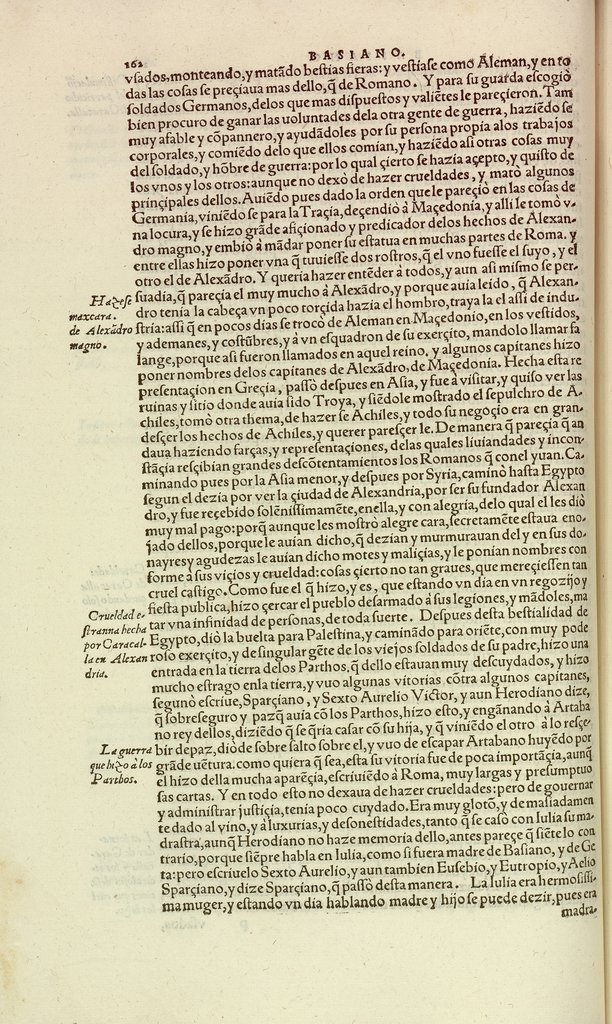 162
BASIANO.
vsados,monteando,y matãdo bestias fieras:y vestiase como Aleman,y en to
das las cosas se preçiaua mas dello,q̃ de Romano. Y para su guarda escogio
soldados Germanos,delos que mas dispuestos y valiẽtes le pareçieron. Tam
bien procuro de ganar las uoluntades dela otra gente de guerra, haziẽdo se
muy afable y cõpannero,y ayudãdoles por su persona propia alos trabajos
corporales,y comiẽdo delo que ellos comian,y haziẽdo asi otras cosas muy
del soldado,y hõbre de guerra:por lo qual çierto se hazia açepto,y quisto de
los vnos y los otros:aunque no dexò de hazer crueldades, y matò algunos
prinçipales dellos. Auiẽdo pues dado la orden que le pareçio en las cosas de
Germania,viniẽdo se para la Traçia,deçendiò à Maçedonia,y alli le tomò v-
na locura,y se hizo grãde afiçionado y predicador delos hechos de Alexan-
dro magno,y embiò à mãdar poner su estatua en muchas partes de Roma. y
entre ellas hizo poner vna q̃ tuuiesse dos rostros,q̃ el vno fuesse el suyo, y el
otro el de Alexãdro. Y queria hazer entẽder à todos,y aun asi mismo se per-
suadia,q̃ pareçia el muy mucho à Alexãdro,y porque auia leido, q̃ Alexan-
Hazese
maxcara.
de Alexãdro
magno.
dro tenia la cabeça vn poco torçida hazia el hombro,traya la el assi de indu-
stria:assi q̃ en pocos dias se trocò de Aleman en Maçedonio,en los vestidos,
y ademanes,y costũbres,y à vn esquadron de su exerçito, mandolo llamar fa
lange,porque asi fueron llamados en aquel reino. y algunos capitanes hizo
poner nombres delos capitanes de Alexãdro,de Maçedonia. Hecha esta re
presentaçion en Greçia, passò despues en Asia, y fue à visitar,y quiso ver las
ruinas y sitio donde auia sido Troya, y siẽdole mostrado el sepulchro de A-
chiles,tomò otra thema,de hazer se Achiles,y todo su negoçio era en gran-
desçer los hechos de Achiles,y querer paresçer le. De manera q̃ pareçia q̃ an
daua haziendo farças,y representaçiones, delas quales liuiandades y incon-
stãçia resçibian grandes descõtentamientos los Romanos q̃ conel yuan. Ca-
minando pues por la Asia menor,y despues por Syria,caminò hasta Egypto
segun el dezia por ver la çiudad de Alexandria,por ser su fundador Alexan
dro,y fue reçebido solẽnissimamẽte,enella,y con alegria,delo qual el les diò
muy mal pago:porq̃ aunque les mostrò alegre cara,secretamẽte estaua eno-
jado dellos,porque le auian dicho,q̃ dezian y murmurauan del y en sus do-
nayres y agudezas le auian dicho motes y maliçias,y le ponian nombres con
forme à sus viçios y crueldad:cosas çierto no tan graues,que mereçiessen tan
cruel castigo. Como fue el q̃ hizo,y es, que estando vn dia en vn regozijo y
fiesta publica,hizo çercar el pueblo desarmado à sus legiones,y mãdoles,ma
Crueldad e-
stranna hecha
por Caracal-
la en Alexan
dria.
tar vna infinidad de personas,de toda suerte. Despues desta bestialidad de
Egypto,diò la buelta para Palestina,y caminãdo para oriẽte,con muy pode
roso exerçito,y de singular gẽte de los viejos soldados de su padre,hizo vna
entrada en la tierra delos Parthos,q̃ dello estauan muy descuydados, y hizo
mucho estrago enla tierra,y vuo algunas vitorias cõtra algunos capitanes,
segunò escriue,Sparçiano, y Sexto Aurelio Victor, y aun Herodiano dize,
q̃ sobreseguro y pazq̃ auia cõ los Parthos,hizo esto,y engãnando à Artaba
no rey dellos,diziẽdo q̃ se q̃ria casar cõ su hija, y q̃ viniẽdo el otro à lo resçe-
La guerra
que hizo à los
Parthos.
bir de paz,diò de sobre salto sobre el,y vuo de escapar Artabano huyẽdo por
grãde uẽtura.como quiera q̃ sea,esta su vitoria fue de poca importãçia,aunq̃
el hizo della mucha apareçia,escriuiẽdo à Roma, muy largas y presumptuo
sas cartas. Y en todo esto no dexaua de hazer crueldades:pero de gouernar
y administrar justiçia,tenia poco cuydado. Era muy glotõ,y demasiadamen
te dado al vino,y à luxurias,y desonestidades,tanto q̃ se casò con Iulia su ma-
drastra,aunq̃ Herodiano no haze memoria dello,antes pareçe q̃ siẽte lo con
trario,porque siẽpre habla en Iulia,como si fuera madre de Basiano, y de Ge
ta:pero escriuelo Sexto Aurelio,y aun tambien Eusebio,y Eutropio,y Aelio
Sparçiano,y dize Sparçiano,q̃ passò desta manera. La Iulia era hermosissi-
ma muger,y estando vn dia hablando madre y hijo se puede dezir,pues era
madra-